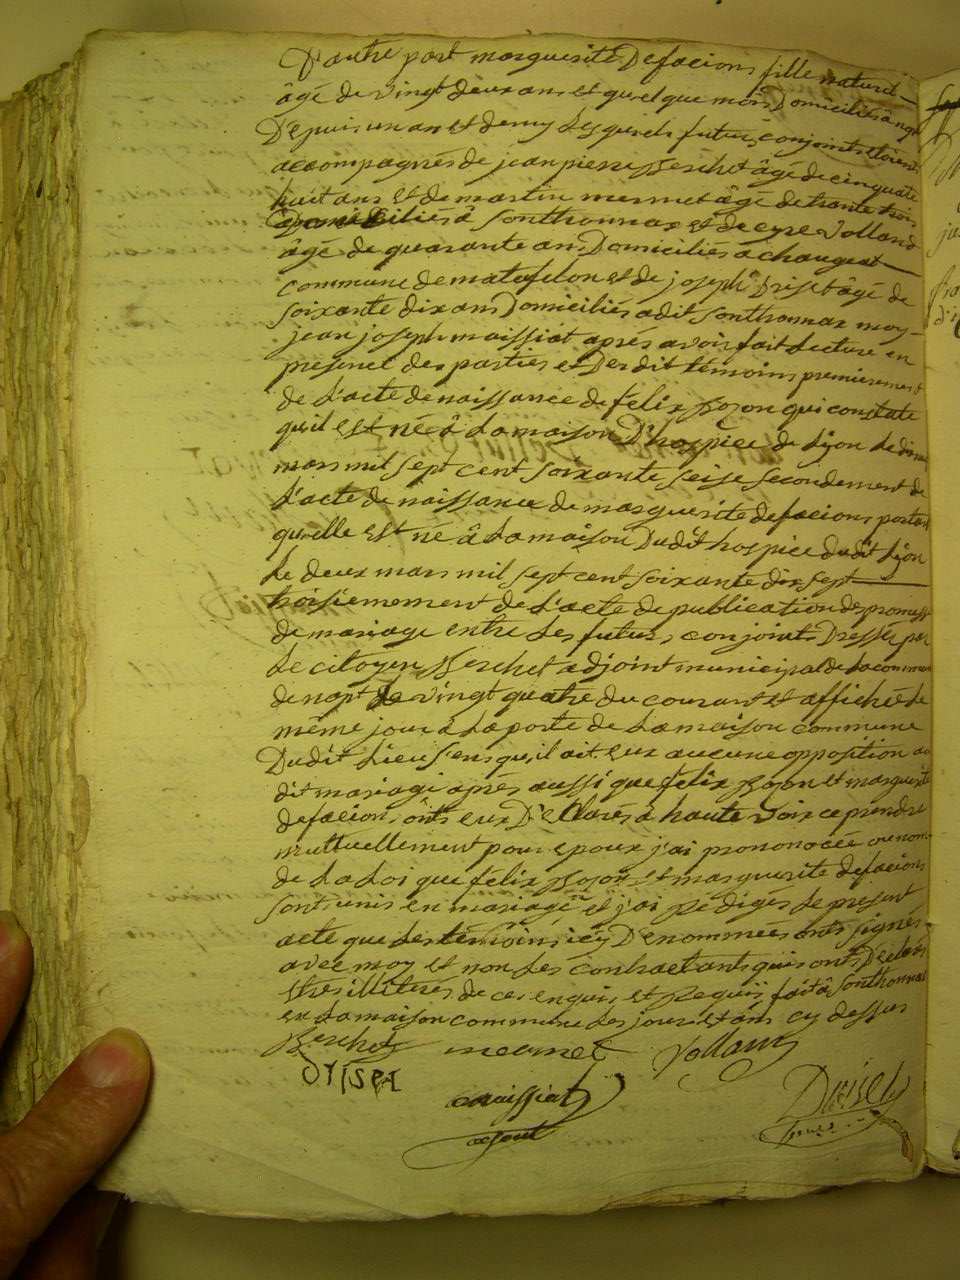 D'autre part marguerite Defacions fille naturel
âgé de vingt deux ans et quelque mois Domiciliés à nopt
Depuis un an et demy Lesquels futurs conjoints étoient
accompagnés de jean pierre Berchet âgé de cinquate
huit ans et de martin mermet âgé de trante trois
Domiciliés à Sonthonnax et de eyre Volland
âgé de quarante ans Domiciliés a changeat
commune de matafelon et de joseph Driset âgé de
Soixante dix ans Domiciliés adit Sonthonnax moy
jean joseph maissiat après avoir fait Lecture en
presence des parties et Des dit témoins premierement
de L'acte de naissance de félix Bozon qui constate
qu'il est né â La maison D'hospice de Lyon Le dix
mars mil sept cent soixante seise secondement de
L'acte de naissance de marguerite defacions portant
quelle est né â La maison Dudit hospice dudit Lyon
Le deux mars mil sept cent soixante dix sept
troisiemement de L'acte de publication des promesse
de mariage entre Les futurs conjoints Dressés par
Le citoyen Berchet adjoint municipal de La commune
de nopt Le vingt quatre du courant et affiché Le
même jour à La porte de La maison commune
Dudit Lieu Sens qu'il ait eux aucune opposition au
dit mariage après aussi que felix Bozon et marguerite
defacions onts eux Déclarés à haute voix ce prendre
muttuellement pour epoux j'ai prononcée ou nom
de La Loi que félix Bozon et marguerite defacions
sont unis en mariage et j'ai Rédigés Le present
acte que Les témoins icy Dénommées onts signés
avec moy et non Les contractants qui onts Déclarés
etres illiteres de ce enquis et Requis fait à Sonthonnax
en La maison commune Les jour et an cy dessus
Berchet mermet Volland
Driset
maissiat Driset
adjout